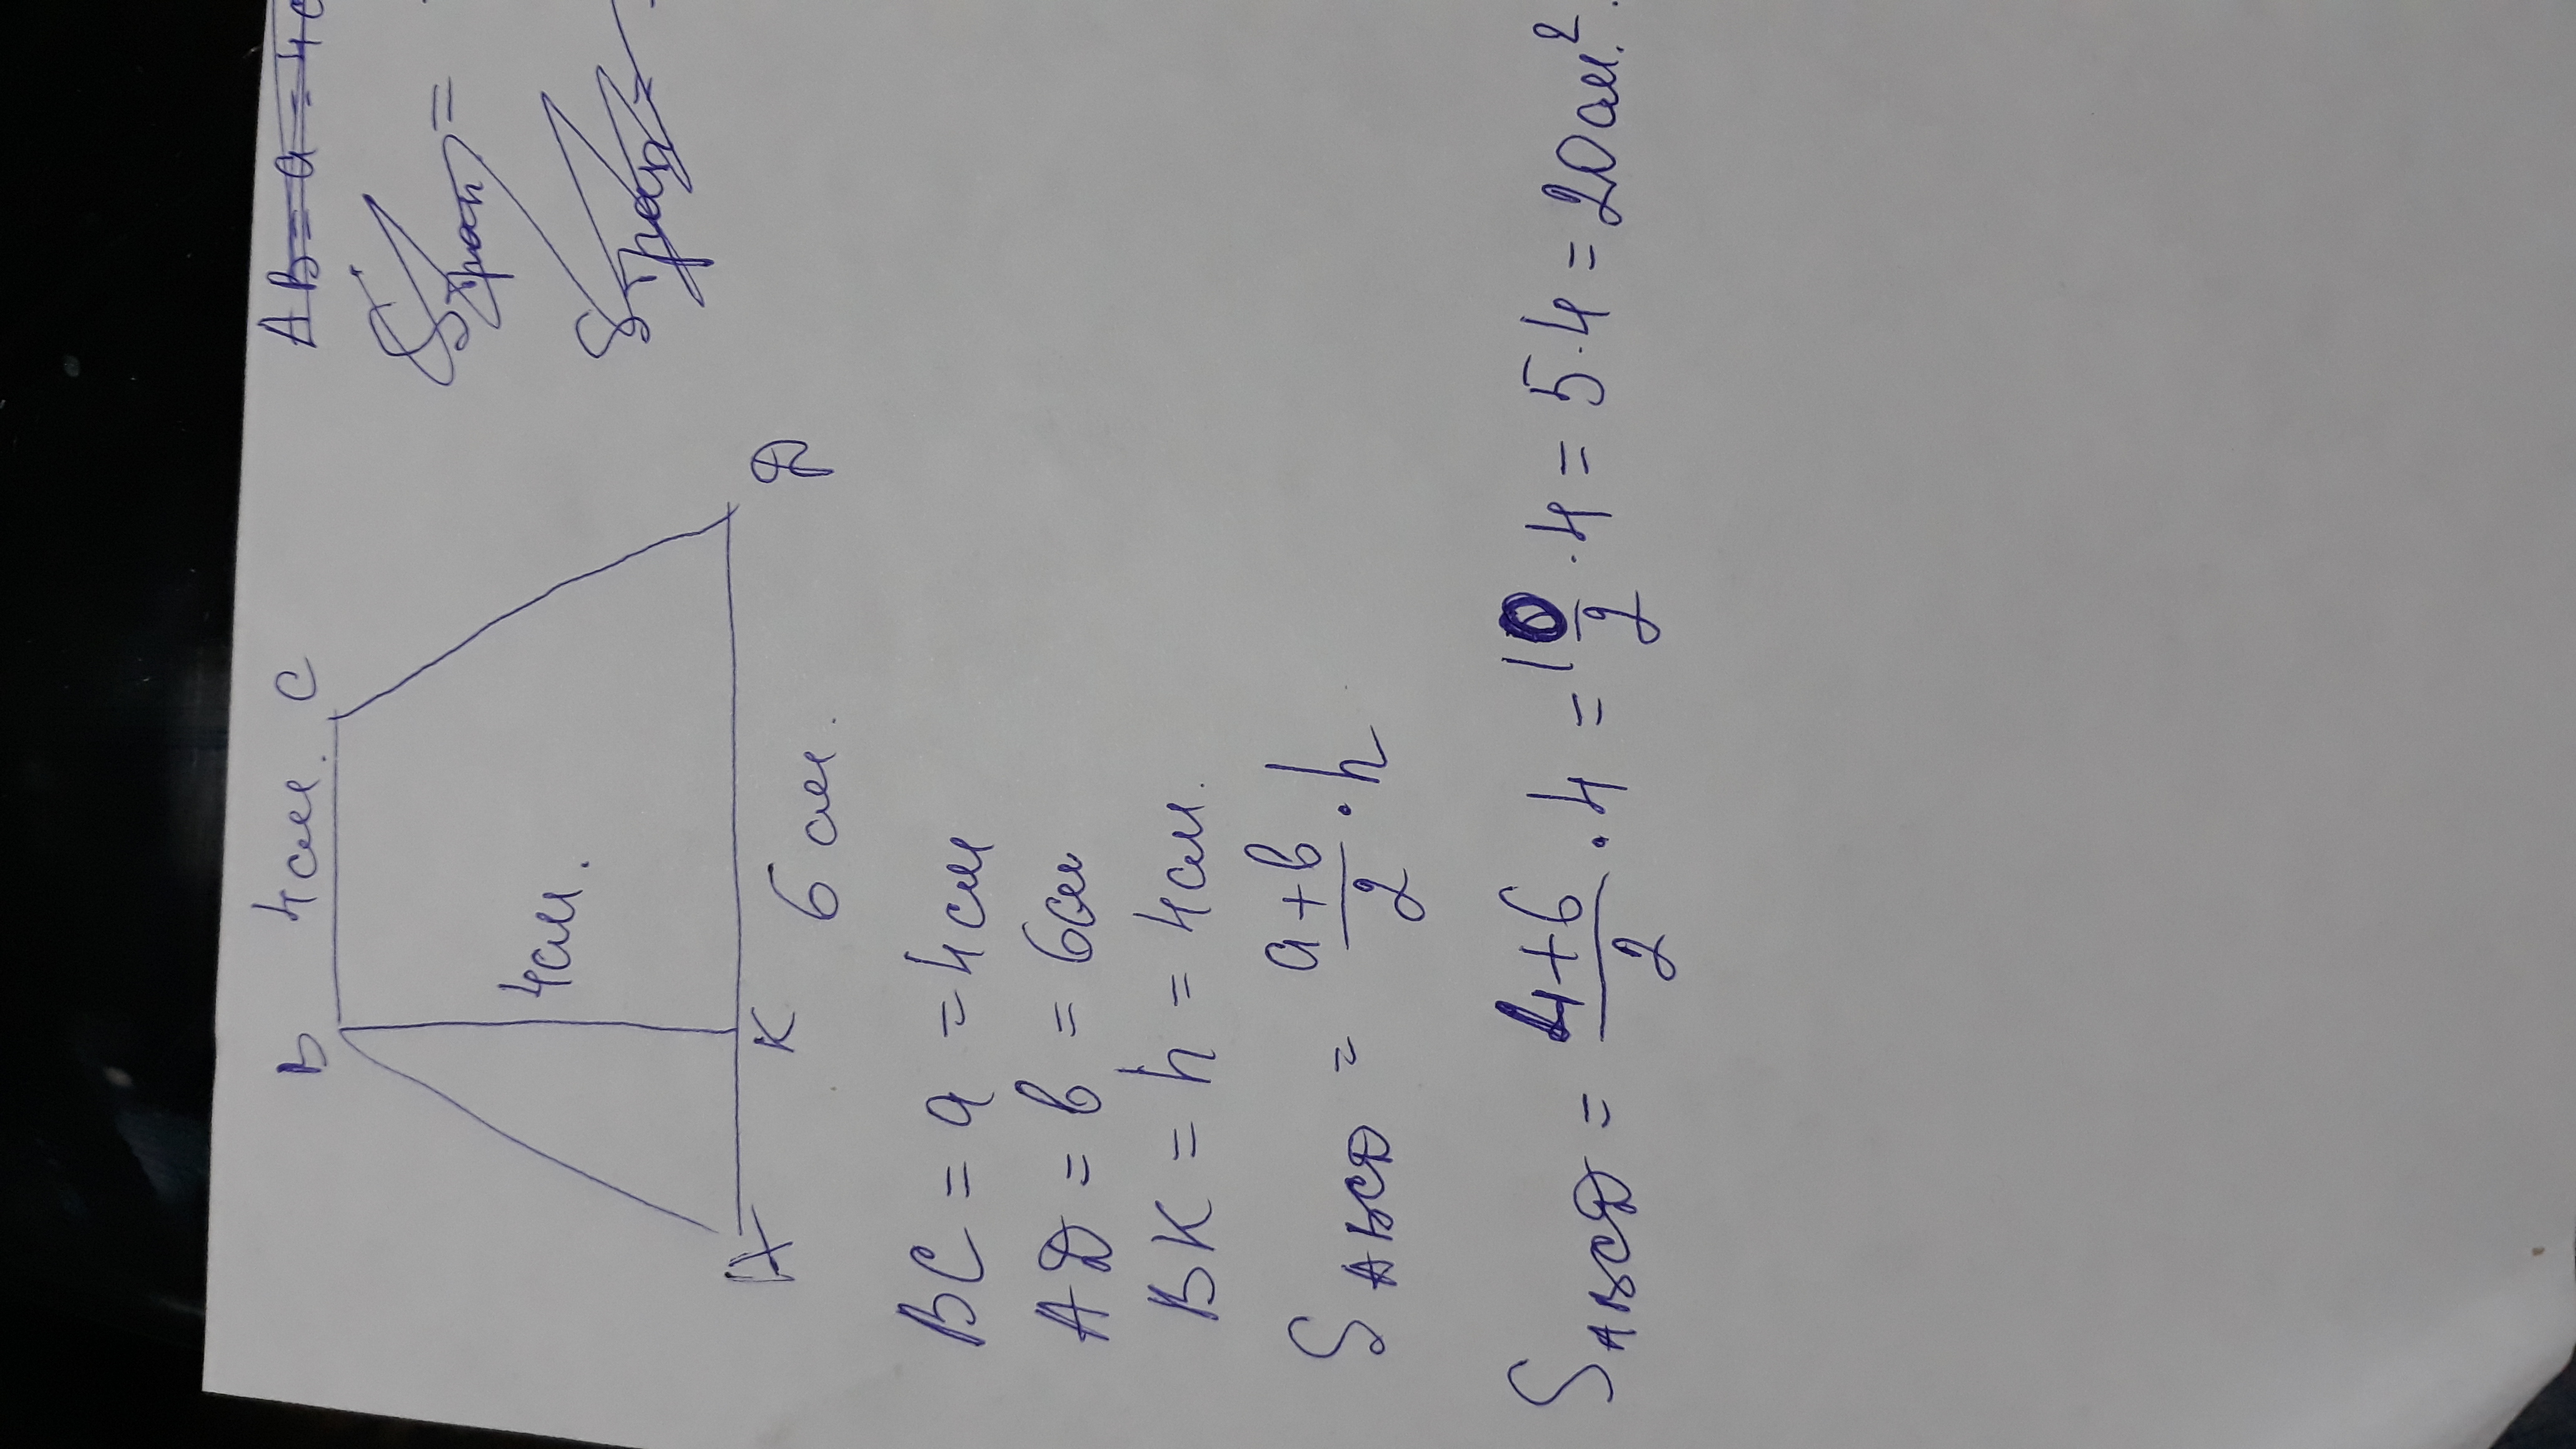 AB = a = 4с
Sтрап =
B 4см. C
4см.
A K D
6 см.
BC = a = 4см
AD = b = 6см
BK = h = 4см.
S ABCD = a+b/2 · h
S ABCD = 4+6/2 · 4 = 10/2 · 4 = 5 · 4 = 20см.²